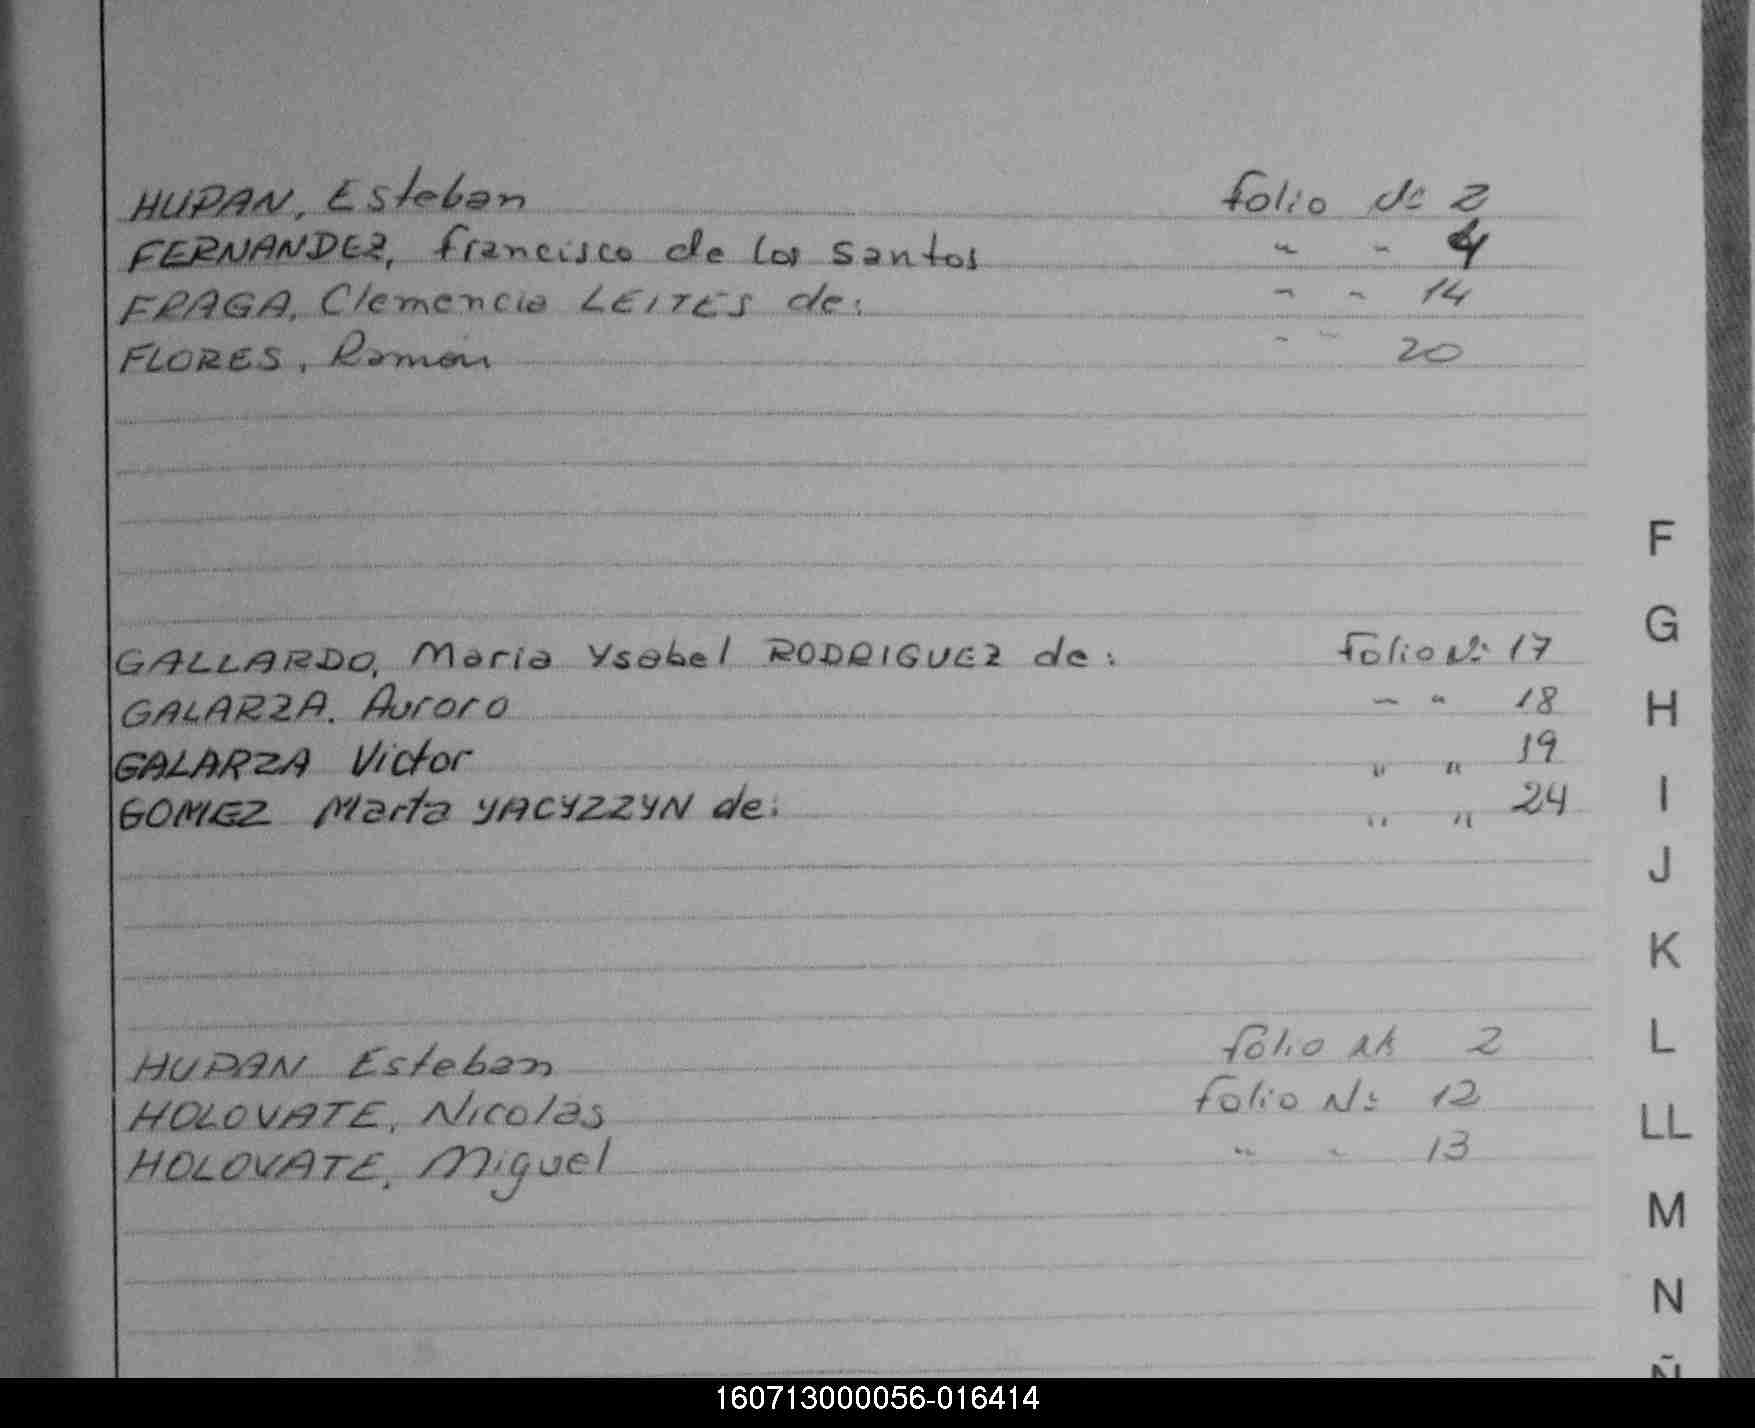 HUPAN, Esteban folio Nº 2
FERNANDEZ, francisco de los santos " " 4
FRAGA, Clemencia LEITES de: " " 14
FLORES, Ramón " " 20
F
G
GALLARDO, Maria Ysabel RODRIGUEZ de: Folio Nº 17
GALARZA. Aurora " " 18
H
GALARZA Victor " " 19
GOMEZ Marta YACYZZYN de: " " 24
I
J
K
HUPAN Esteban folio Nº 2
L
HOLOVATE, Nicolás folio Nº 12
LL
HOLOVATE, Miguel " " 13
M
N
Ñ
160713000056-016414